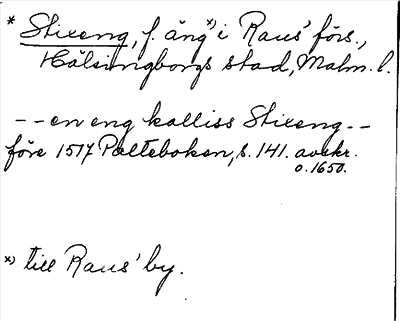 * Stixeng, f. äng *) i Raus' förs.,
Hälsingborgs stad, Malm. l.
-- en eng kalliss Stixeng --
före 1517 Palteboken, s. 141. avskr.
o. 1650.
*) till Raus' by.